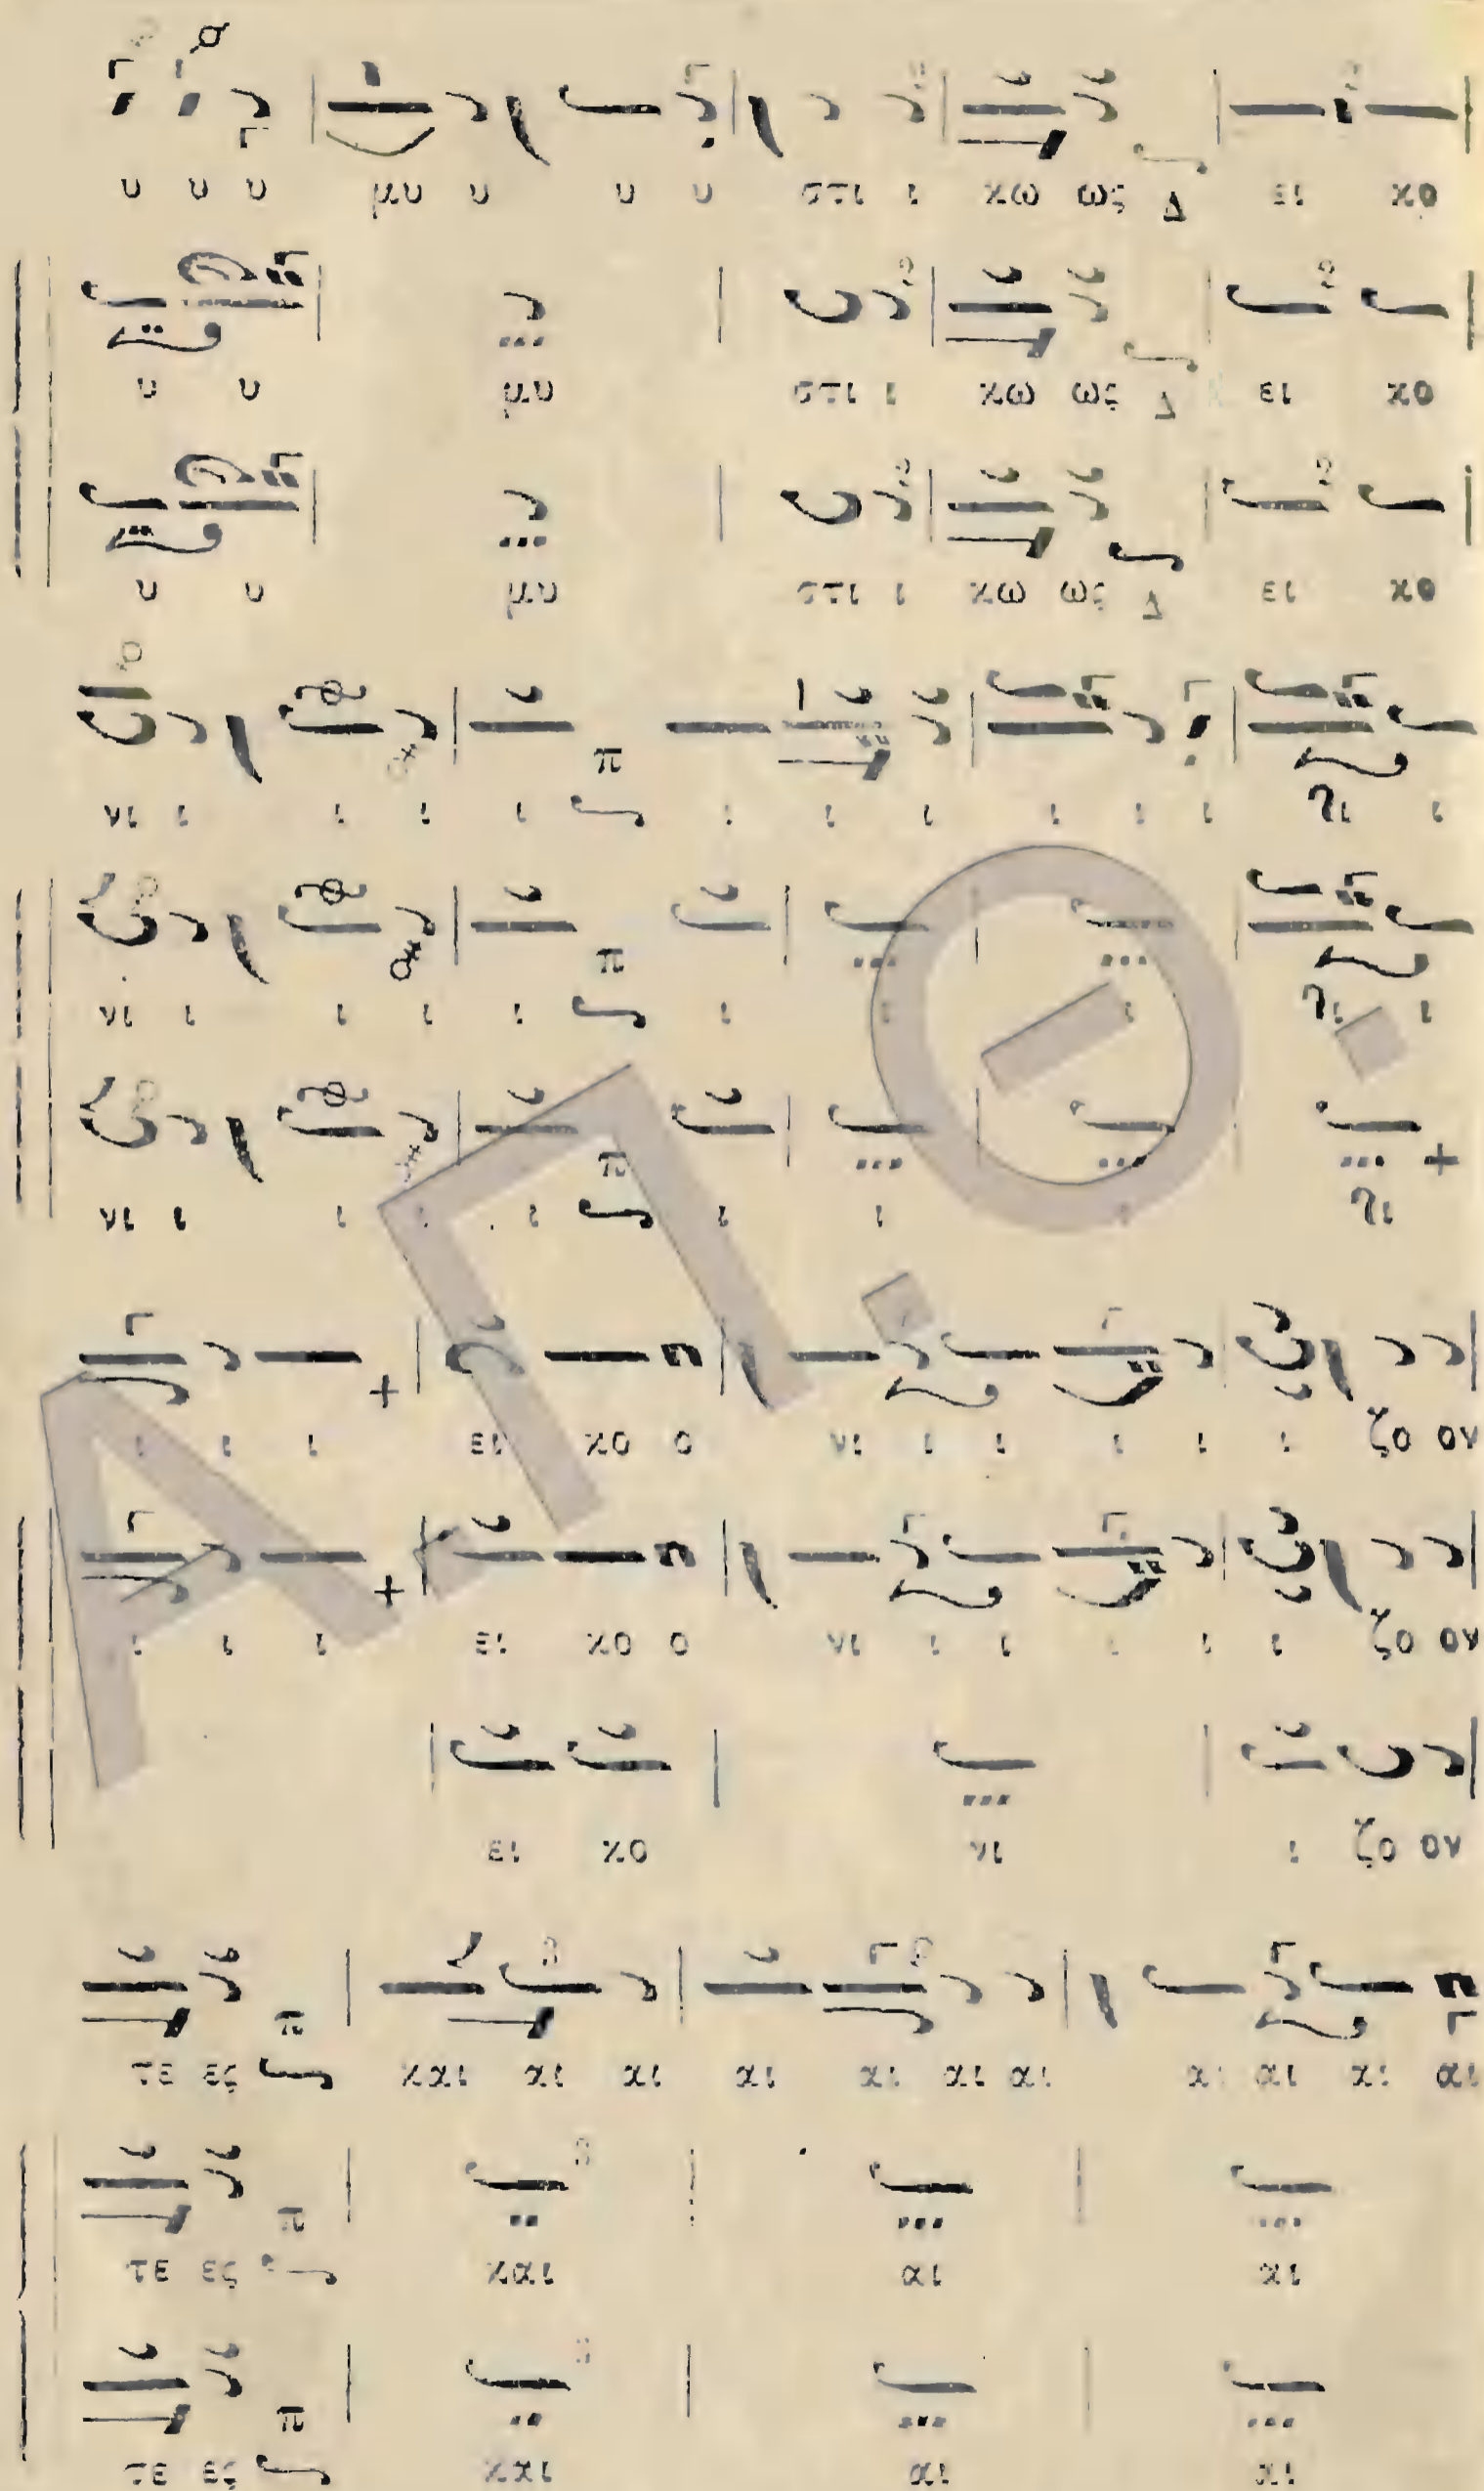 υ υ υ μυ υ υ υ στι ι κω ως Δ ει κο
υ υ μυ στι ι κω ως Δ ει κο
υ υ μυ στι ι κω ως Δ ει κο
π
νι ι ι ι ι ι ι ι ι ι ι ϟι ι
π
νι ι ι ι ι ι ι ι ϟι ι
π
νι ι ι ι ι ι ι ι ϟι
ι ι ι ει κο ο νι ι ι ι ι ι ζο ον
ι ι ι ει κο ο νι ι ι ι ι ι ζο ον
ει κο νι ι ζο ον
π
τε ες και αι αι αι αι αι αι αι αι αι αι
π
τε ες και αι αι
π
τε ες και αι αι
Α.Π.Θ.